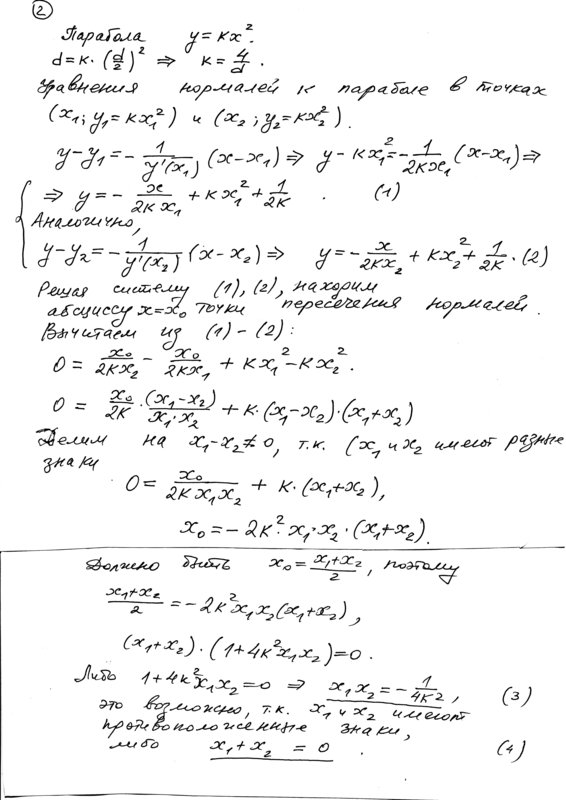 ②
Парабола y = kx².
d = k·(d/2)² ⇒ k = 4/d.
Уравнения нормалей к параболе в точках
(x₁; y₁ = kx₁²) и (x₂; y₂ = kx₂²).
y − y₁ = − 1/y'(x₁) (x − x₁) ⇒ y − kx₁² = − 1/(2kx₁) (x − x₁) ⇒
⇒ y = − x/(2kx₁) + kx₁² + 1/(2k). (1)
Аналогично,
y − y₂ = − 1/y'(x₂) (x − x₂) ⇒ y = − x/(2kx₂) + kx₂² + 1/(2k). (2)
Решая систему (1), (2), находим
абсциссу x = x₀ точки пересечения нормалей.
Вычитаем из (1) − (2):
0 = x₀/(2kx₂) − x₀/(2kx₁) + kx₁² − kx₂².
0 = x₀/(2k) · (x₁ − x₂)/(x₁·x₂) + k·(x₁ − x₂)·(x₁ + x₂)
Делим на x₁ − x₂ ≠ 0, т.к. (x₁ и x₂ имеют разные
знаки
0 = x₀/(2kx₁x₂) + k·(x₁ + x₂),
x₀ = − 2k²·x₁·x₂·(x₁ + x₂).
Должно быть x₀ = (x₁ + x₂)/2, поэтому
(x₁ + x₂)/2 = − 2k²x₁x₂(x₁ + x₂),
(x₁ + x₂)·(1 + 4k²x₁x₂) = 0.
Либо 1 + 4k²x₁x₂ = 0 ⇒ x₁x₂ = − 1/(4k²), (3)
это возможно, т.к. x₁ и x₂ имеют
противоположенные знаки,
либо x₁ + x₂ = 0. (4)